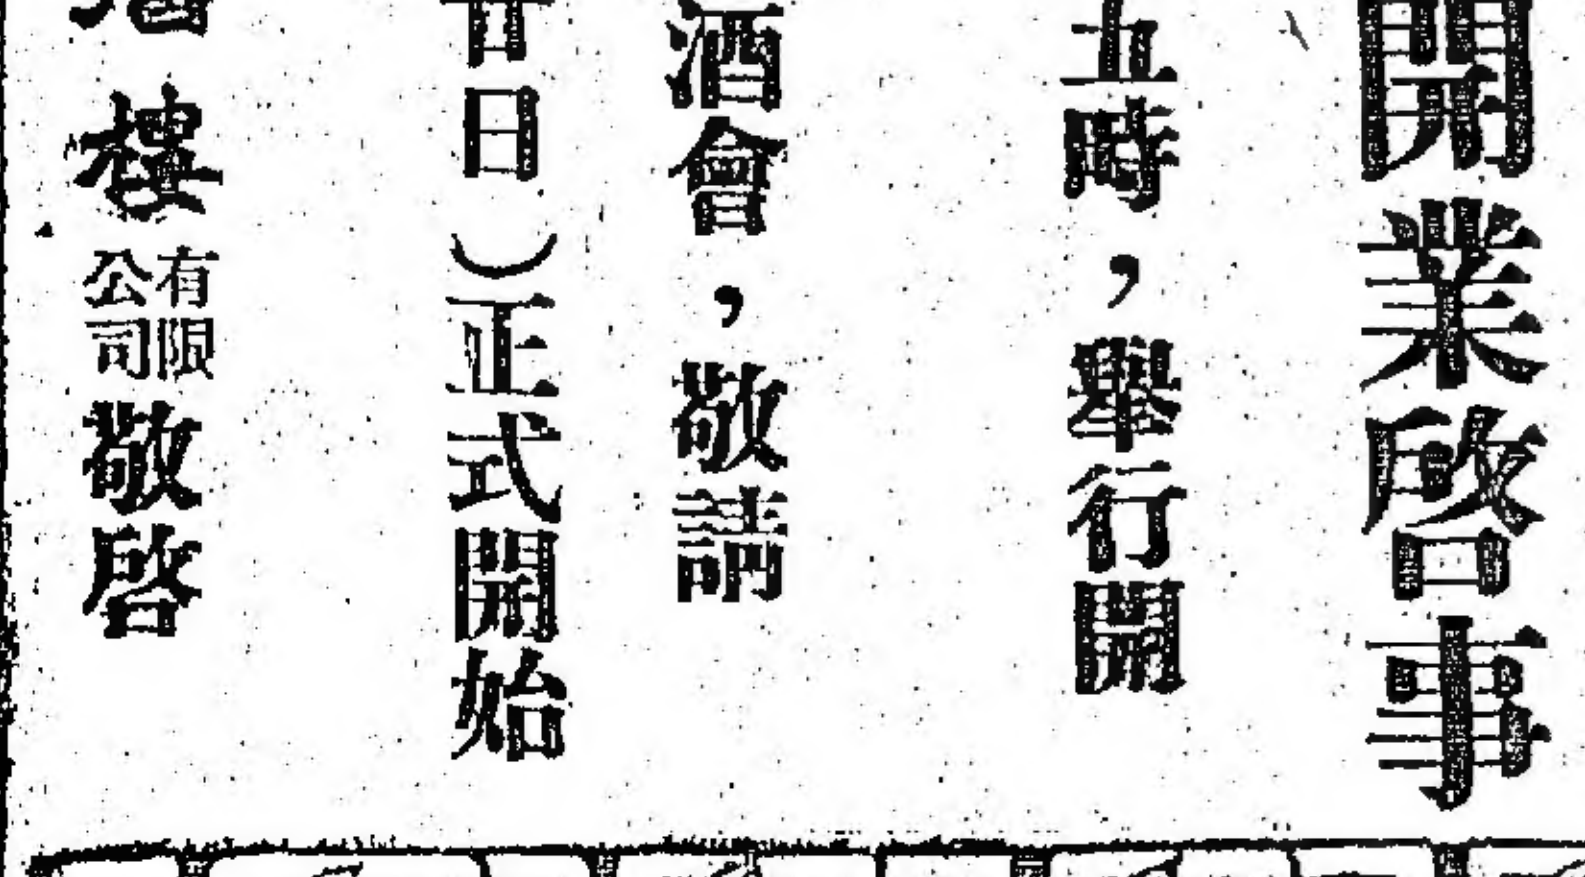 開業啓事
五時，舉行開
酒會，敬請
廿日）正式開始
樓有限公司敬啓